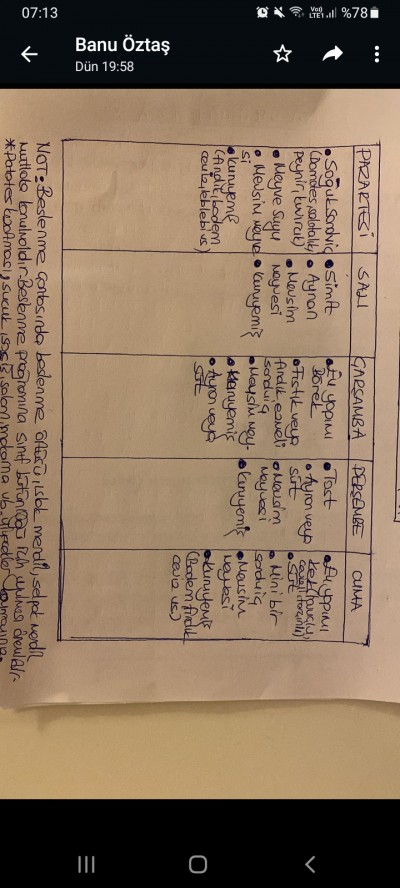 07:13
%78
Banu Öztaş
Dün 19:58
PAZARTESİ
• Soğuk sandviç
(Domates, salatalık,
peynir, kıvırcık)
• Meyve Suyu
• Mevsim meyve
si
• Kuruyemiş
(Fındık, badem
ceviz, leblebi vs)
SALI
• Simit
• Ayran
• Mevsim
meyvesi
• Kuruyemiş
ÇARŞAMBA
• Ev yapımı
börek
• Fıstık veya
fındık ezmeli
sandviç
• Mevsim mey-
• Kuruyemiş
• Ayran veya
süt
PERŞEMBE
• Tost
• Ayran veya
süt
• Mevsim
meyvesi
• Kuruyemiş
CUMA
• Ev yapımı
kek (havuçlu,
cevizli, tarçınlı)
• Süt
• Mini bir
sandviç
• Mevsim
meyvesi
• Kuruyemiş
(Badem fındık
ceviz vs.)
NOT: Beslenme çantasında beslenme örtüsü, ıslak mendil, selpak mendil
mutlaka Beslenme programına sınıf bütünlüğü için
* Patates kızartması, sucuk, salam, makarna vb.